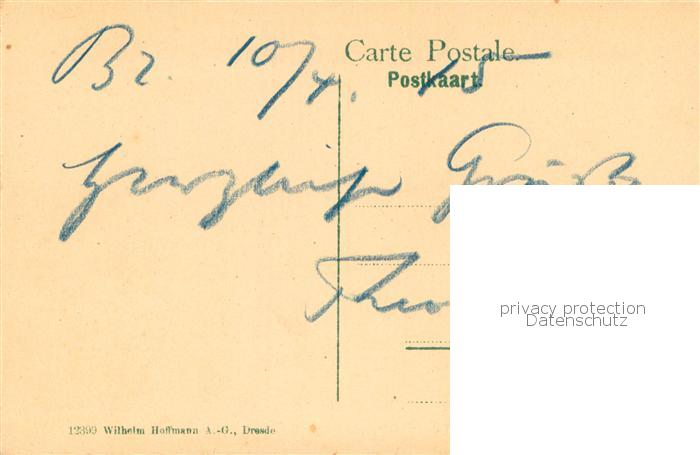 Carte Postale.
Postkaart.
Br. 10/4. 15
Herzliche Grüße
Theo
privacy protection
Datenschutz
12399 Wilhelm Hoffmann A.-G., Dresde